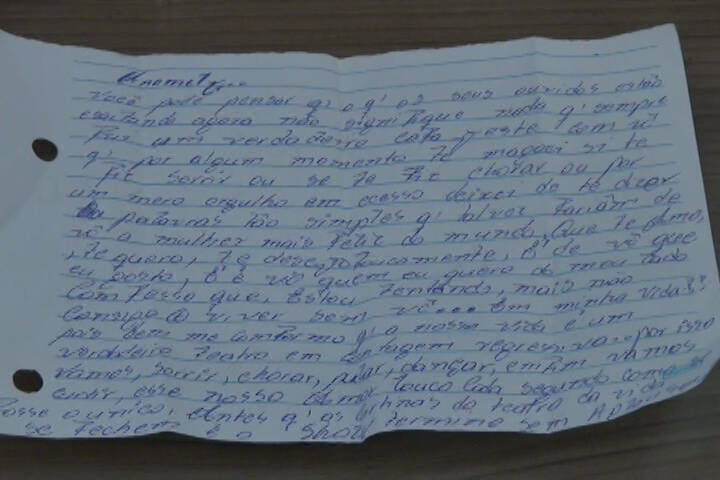 Você pode pensar q' o q' os seus ouvidos estão
escultando agora não signifique nada q' sempre
Fui um verdadeiro cafajeste com vô
q' por algum momento te magoei si te
Fiz sorrir ou se te Fiz chorar ou por
um mero orgulho em ecesso deixei de te dizer
palavras tão simples q' talvez fariam de
vô a mulher mais feliz do mundo, que te Amo,
te quero, te desejo loucamente, é de vô que
eu gosto, é é vô quem eu quero do meu lado
Comfesso que, Estou tentando, mais não
Consigo viver sem vô... Em minha vida!
pois bem me comformo q' a nossa vida é um
verdadeiro teatro em contagem regressiva por isso
vamos, sorrir, chorar, pular, dançar, emfim vamos
curtir, esse nosso Amor louco Cada segundo como se
Fosse o unico, Antes q' as curtinas do teatro da vida
se Fechem e o Show termine sem